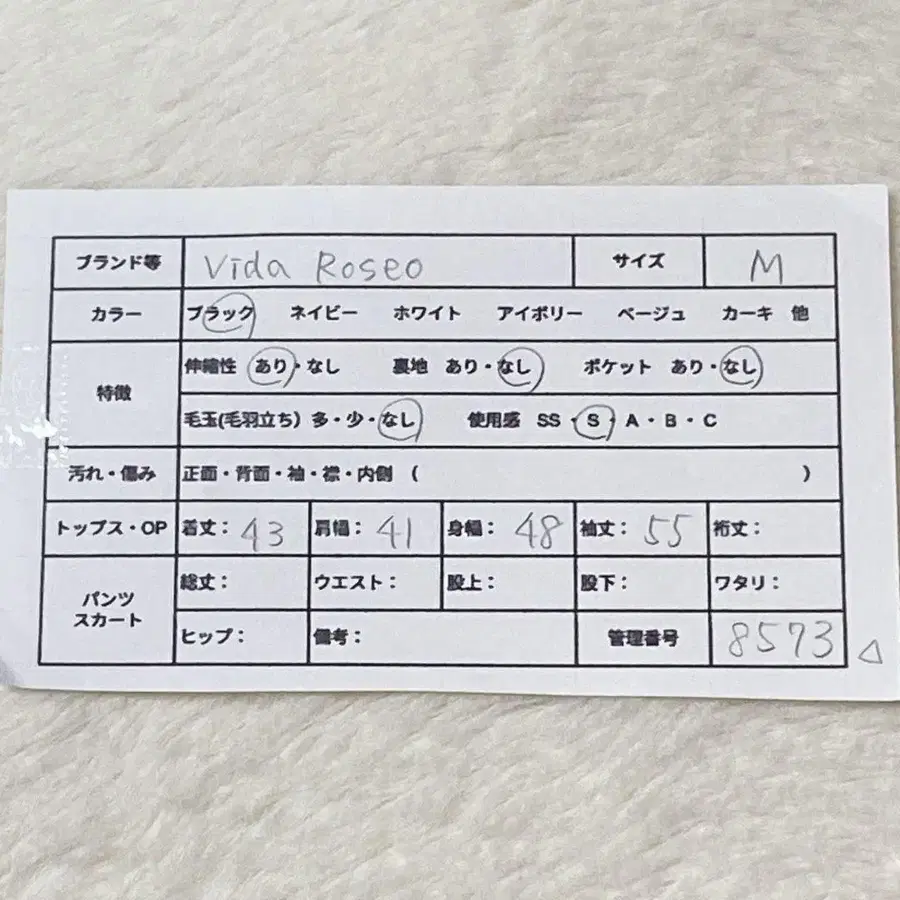 ブランド等 Vida Roseo サイズ M
カラー ブラック ネイビー ホワイト アイボリー ベージュ カーキ 他
特徴
伸縮性 あり・なし 裏地 あり・なし ポケット あり・なし
毛玉(毛羽立ち) 多・少・なし 使用感 SS・S・A・B・C
汚れ・傷み 正面・背面・袖・襟・内側 ( )
トップス・OP 着丈： 43 肩幅： 41 身幅： 48 袖丈： 55 裄丈：
パンツ
スカート
総丈： ウエスト： 股上： 股下： ワタリ：
ヒップ： 備考： 管理番号 8573